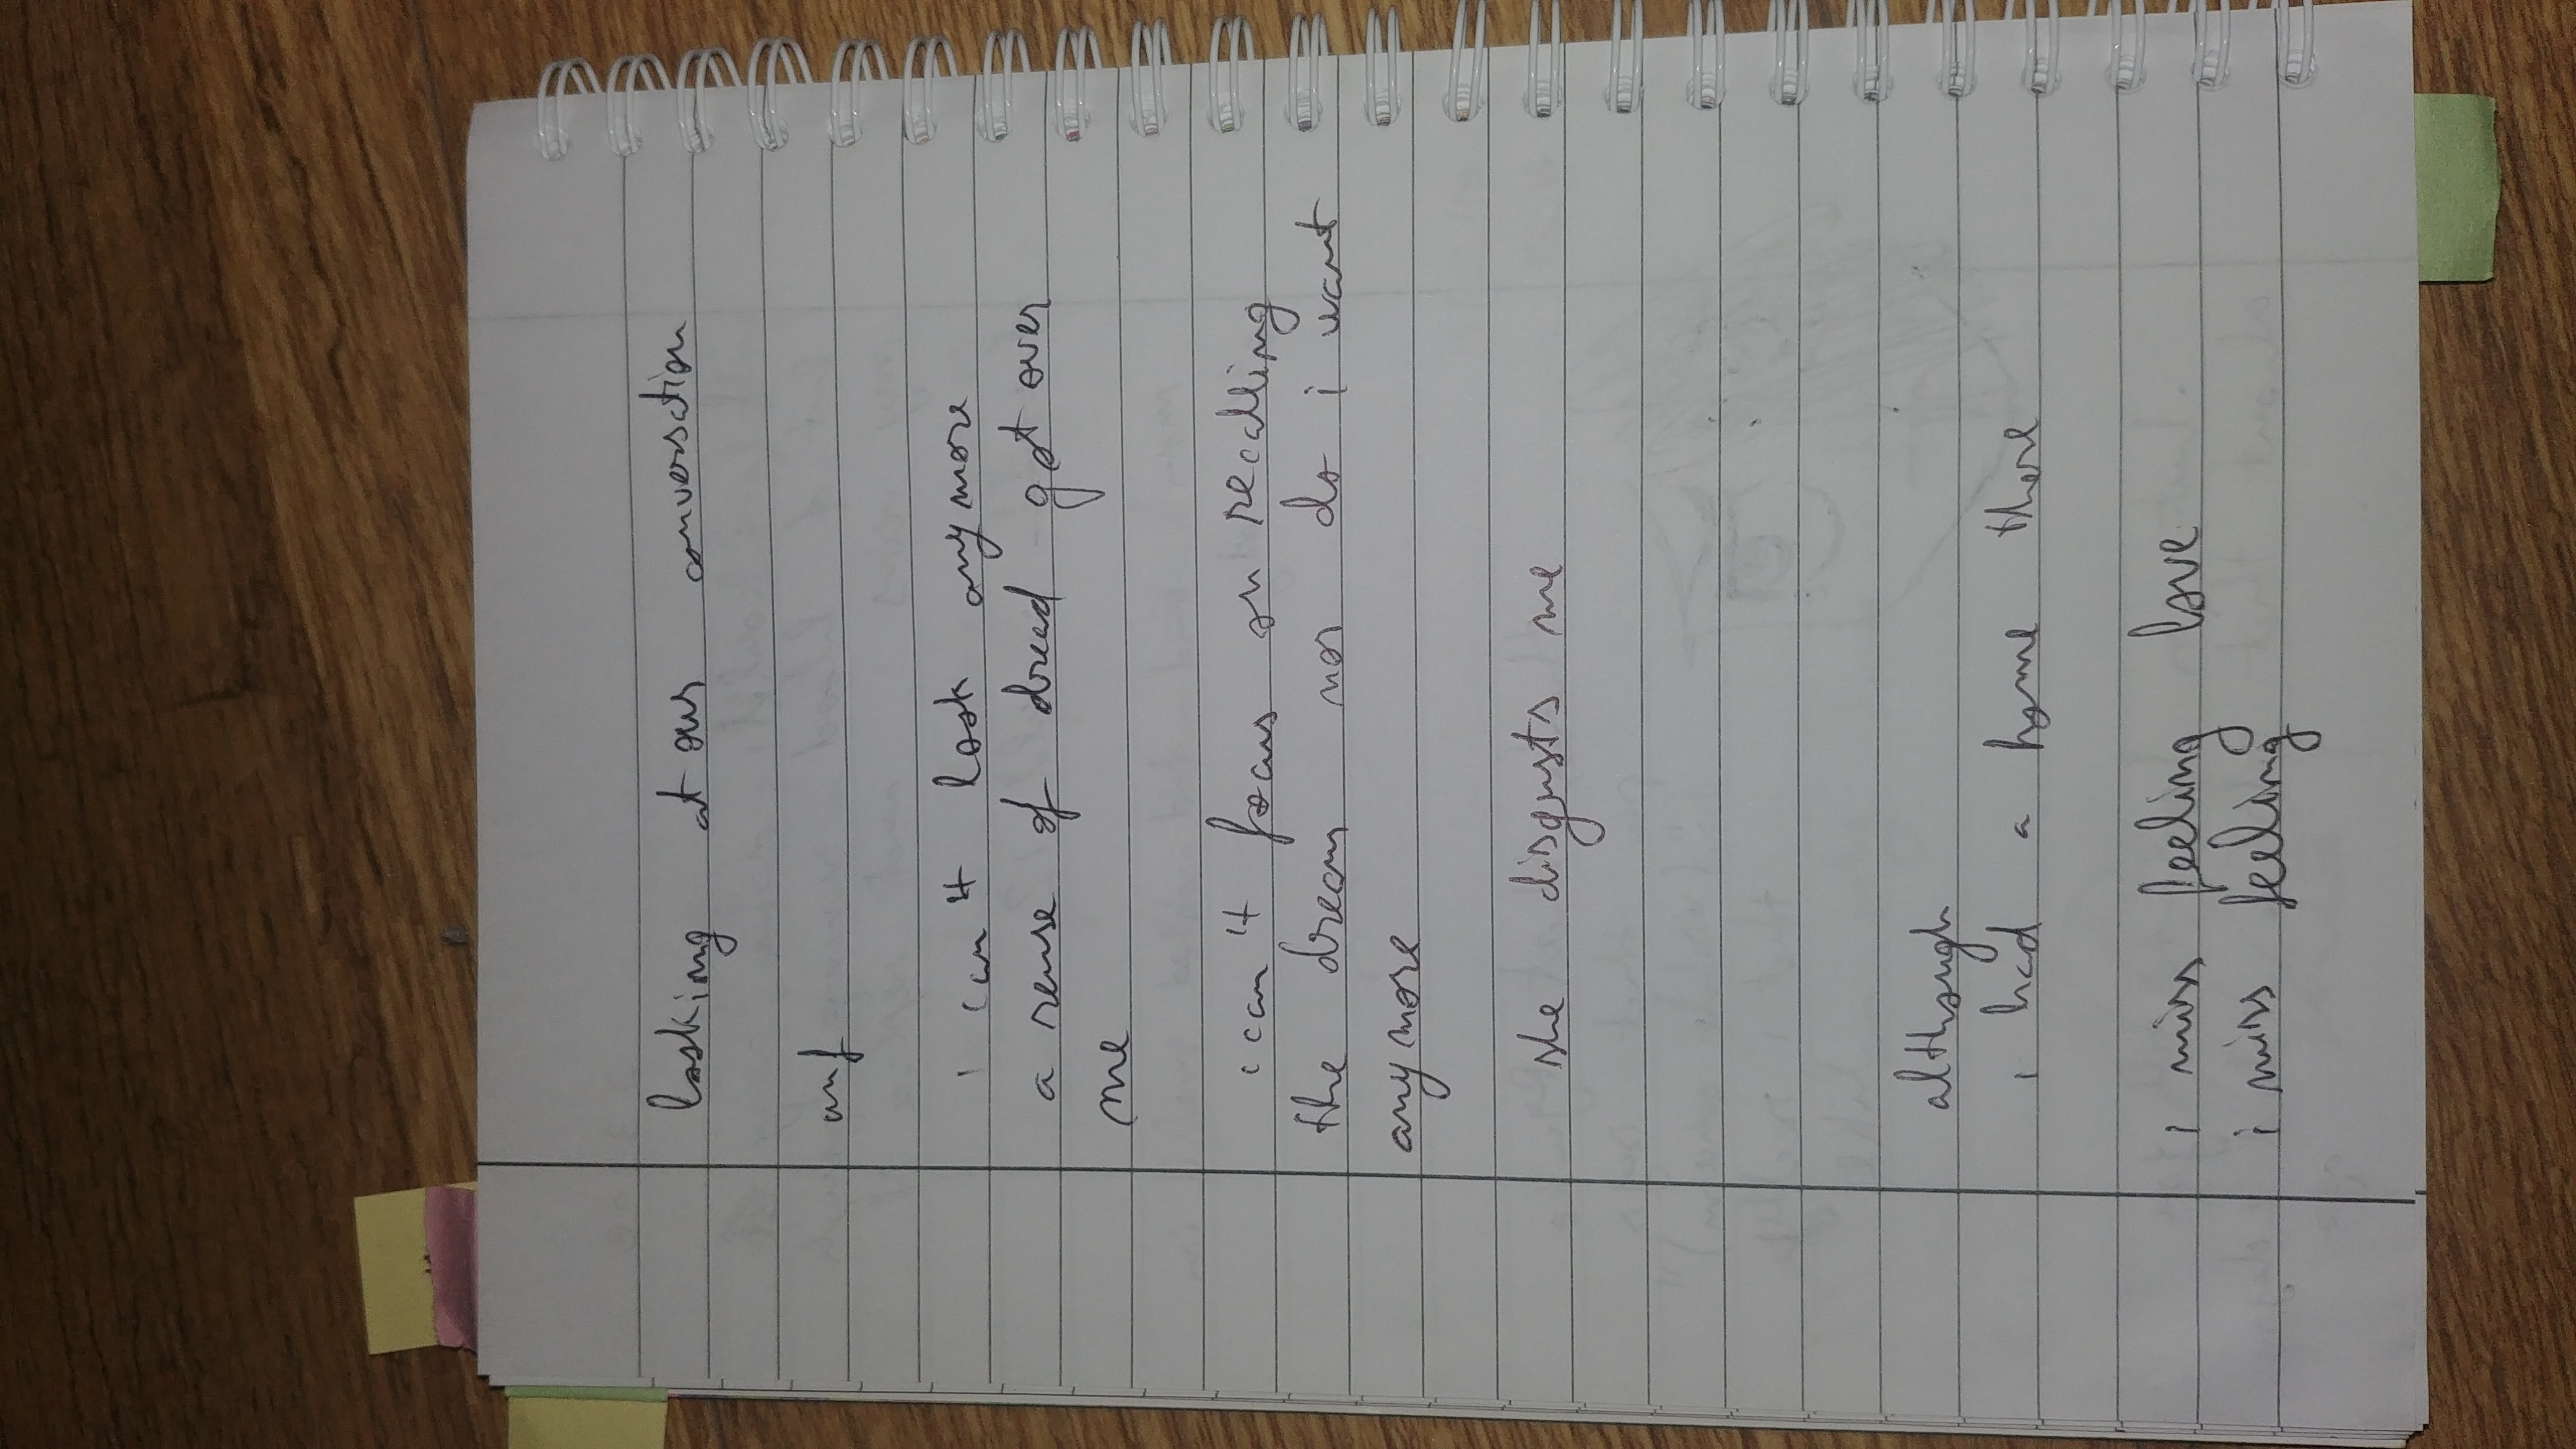 looking at our conversation
anf
i can't look anymore
a sense of dread got over
me
i can't focus on recalling
the dream nor do i want
anymore
she disgusts me
although
i had a home there
i miss feeling love
i miss feeling